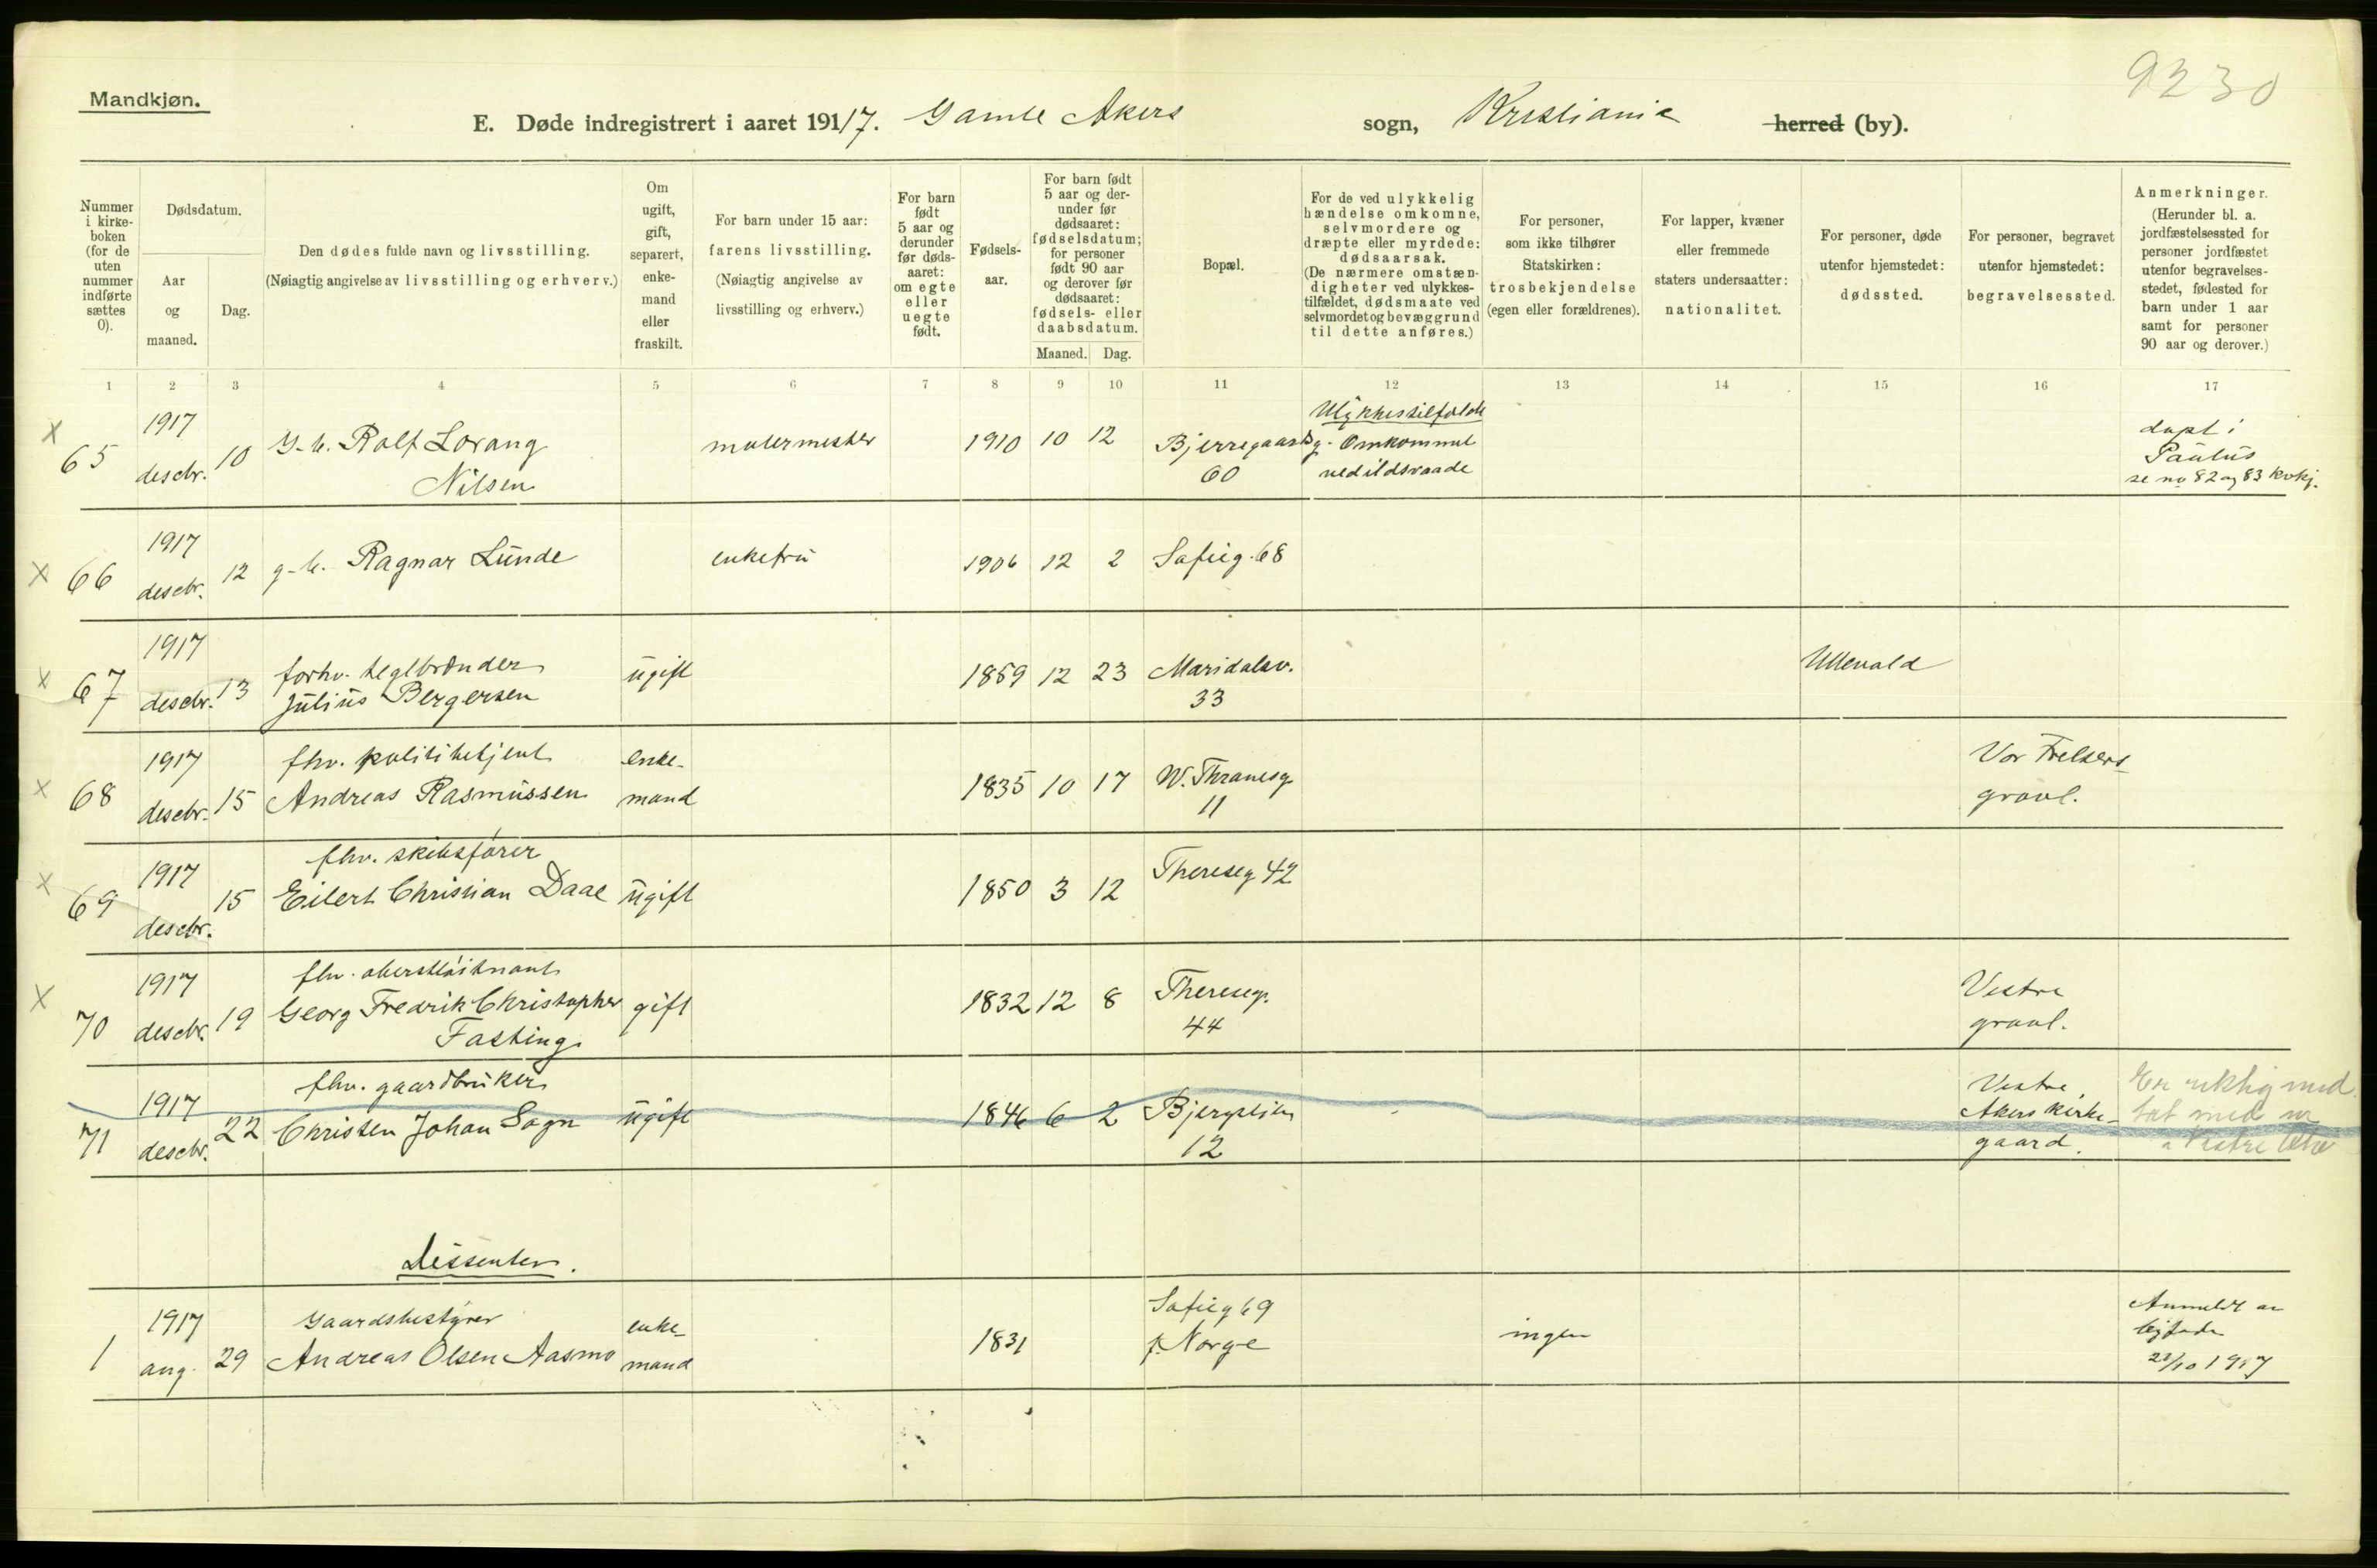 9230
Mandkjøn.
E. Døde indregistrert i aaret 1917. Gamle Akers sogn, Kristiania herred (by).
Nummer i kirke-boken (for de uten nummer indførte sættes 0).
Dødsdatum.
Aar og maaned.
Dag.
Den dødes fulde navn og livsstilling.
(Nøiagtig angivelse av livsstilling og erhverv.)
Om ugift, gift, separert, enke-mand eller fraskilt.
For barn under 15 aar:
farens livsstilling.
(Nøiagtig angivelse av livsstilling og erhverv.)
For barn født 5 aar og derunder før døds-aaret: om egte eller uegte født.
Fødsels-aar.
For barn født 5 aar og der-under før dødsaaret: fødselsdatum; for personer født 90 aar og derover før dødsaaret: fødsels- eller daabsdatum.
Maaned. Dag.
Bopæl.
For de ved ulykkelig hændelse omkomne, selvmordere og dræpte eller myrdede: dødsaarsak.
(De nærmere omstæn-digheter ved ulykkes-tilfældet, dødsmaate ved selvmordet og bevæggrund til dette anføres.)
For personer, som ikke tilhører Statskirken: trosbekjendelse (egen eller forældrenes).
For lapper, kvæner eller fremmede staters undersaatter: nationalitet.
For personer, døde utenfor hjemstedet: dødssted.
For personer, begravet utenfor hjemstedet: begravelsessted.
Anmerkninger.
(Herunder bl. a. jordfæstelsessted for personer jordfæstet utenfor begravelses-stedet, fødested for barn under 1 aar samt for personer 90 aar og derover.)
1 2 3 4 5 6 7 8 9 10 11 12 13 14 15 16 17
x 65 1917 desebr. 10 g-b. Rolf Lorang Nilsen malermester 1910 10 12 Bjerregaardsg. 60 Ulykkestilfælde Omkommet ved ildsvaade døpt i Paulus se no 82 og 83 kvkj.
x 66 1917 desebr. 12 g-b. Ragnar Lunde enkefru 1906 12 2 Sofieg. 68
x 67 1917 desebr. 13 forhv. teglbrænder Julius Bergersen ugift 1859 12 23 Maridalsv. 33 Ullevaal
x 68 1917 desebr. 15 fhv. politibetjent Andreas Rasmussen enke-mand 1835 10 17 W. Thranesg. 11 Vor Frelsers gravl.
x 69 1917 desebr. 15 fhv. skibsfører Eilert Christian Daae ugift 1850 3 12 Thereseg 42
x 70 1917 desebr. 19 fhv. oberstløitnant Georg Fredrik Christopher Fasting gift 1832 12 8 Thereseg. 44 Vestre gravl.
71 1917 desebr. 22 fhv. gaardbruker Christen Johan Sogn ugift 1846 6 2 Bjergstien 12 Vestre Akers kirke-gaard. Er riktig med tat med nr Vestre
Dissenter.
1 1917 aug. 29 Gaardsbestyrer Andreas Olsen Aasmo enke-mand 1831 Sofieg 69 f. Norge ingen Anmeldt av 1917